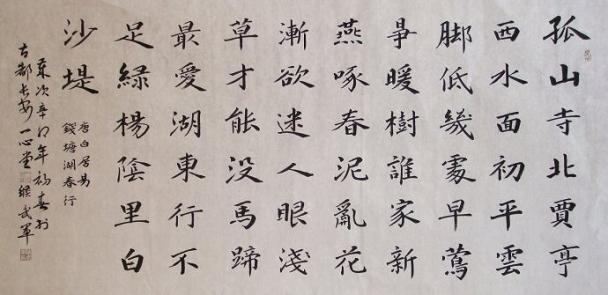 孤山寺北賈亭
西水面初平雲
脚低幾處早鶯
爭暖樹誰家新
燕啄春泥亂花
漸欲迷人眼淺
草才能没馬蹄
最愛湖東行不
足緑楊陰里白
沙堤
唐白居易
錢塘湖春行
歲次辛卯年初春於
古都長安一心堂緱武軍